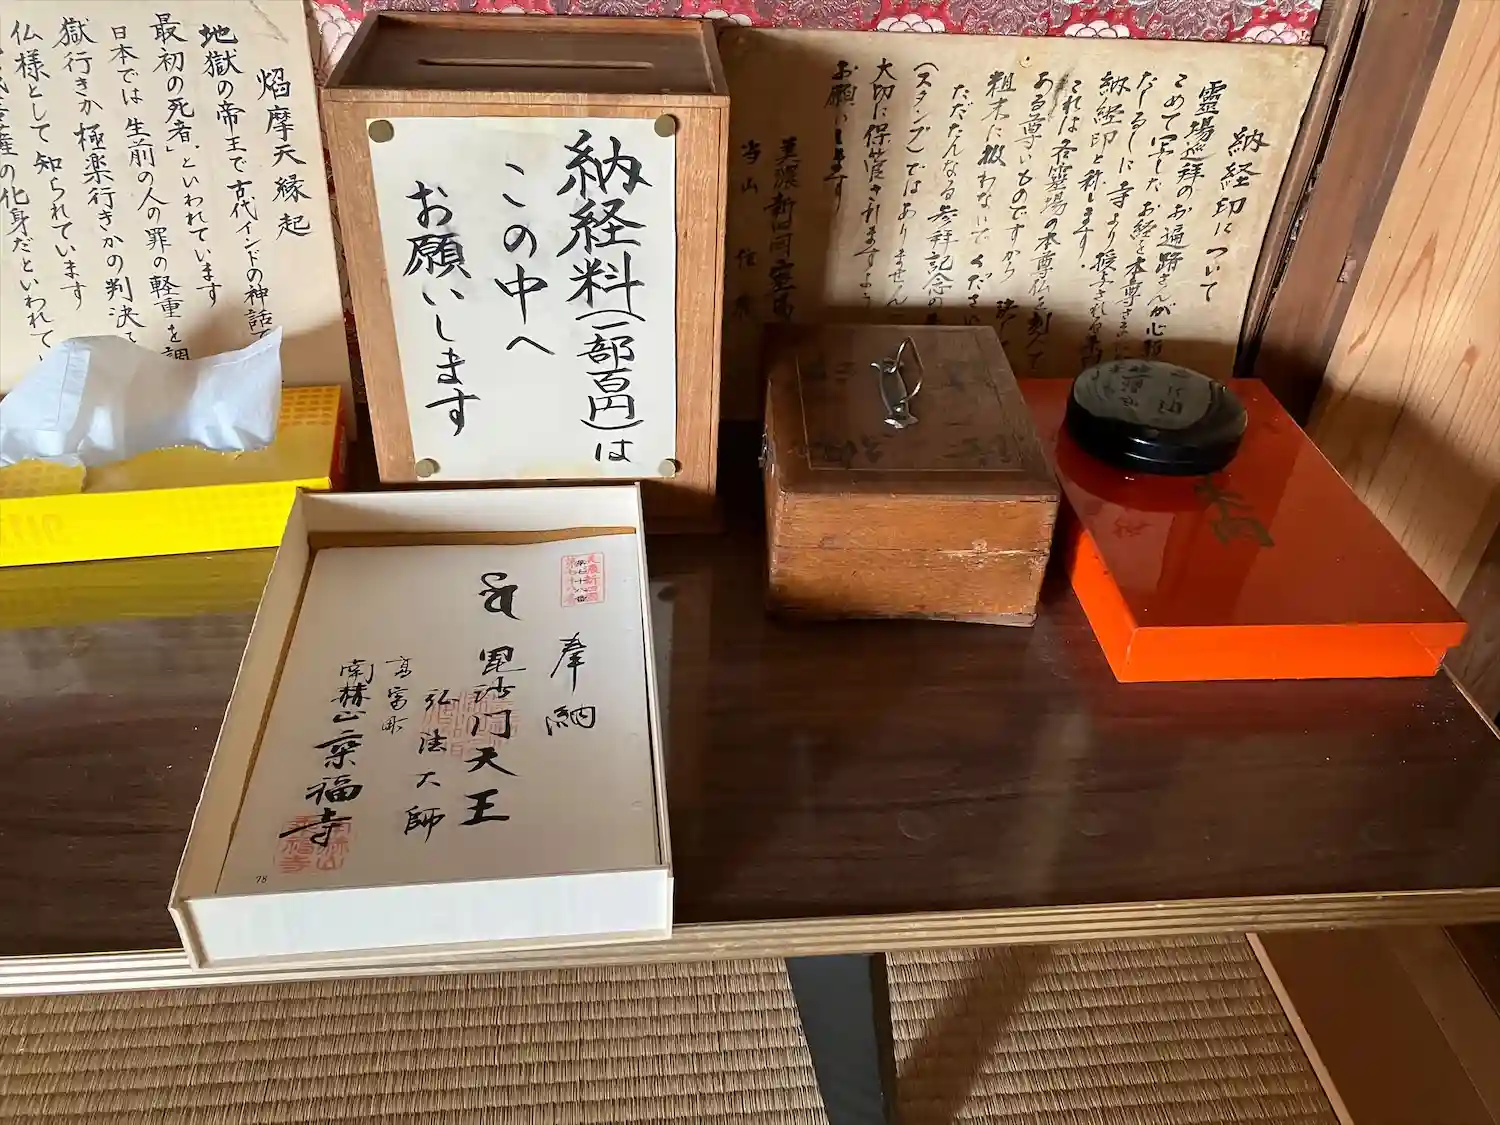 納経印について
霊場巡拝のお遍路さんが心
こめて写したお経を本尊さまに
だしるしに寺より授与される
納経印と称します
これは各霊場の本尊仏を刻んで
ある尊いものですから 決して
粗末に扱わないでください
ただたんなる参拝記念の
(スタンプ)ではありません
大切に保管されますよう
お願いします
美濃新四国
当山 住
納経料(一部百円)は
この中へ
お願いします
焰摩天縁起
地獄の帝王で古代インドの神話で
最初の死者といわれています
日本では 生前の人の罪の軽重を調
獄行きか極楽行きかの判決
仏様として知られています
の化身だといわれてい
奉納
毘沙門天王
弘法大師
高富町
南林山
福寺
78